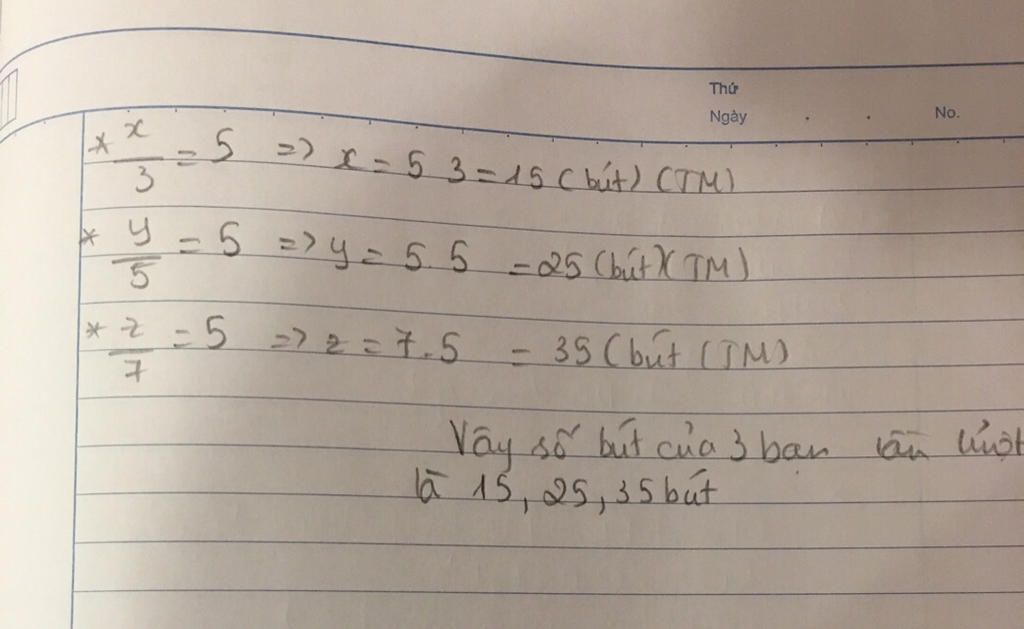 Thứ
Ngày . . No.
* x/3 = 5 => x = 5 3 = 15 (bút) (TM)
* y/5 = 5 => y = 5.5 = 25 (bút)(TM)
* z/7 = 5 => z = 7.5 = 35 (bút (TM)
Vây số bút của 3 bạn lần lượt
là 15, 25, 35 bút